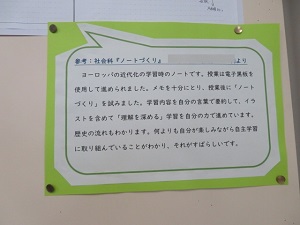 参考：社会科『ノートづくり』 より
ヨーロッパの近代化の学習時のノートです。授業は電子黒板を
使用して進められました。メモを十分にとり、授業後に「ノート
づくり」を試みました。学習内容を自分の言葉で要約して、イラ
ストを含めて「理解を深める」学習を自分の力で進めています。
歴史の流れもわかります。何よりも自分が楽しみながら自主学習
に取り組んでいることがわかり、それがすばらしいです。